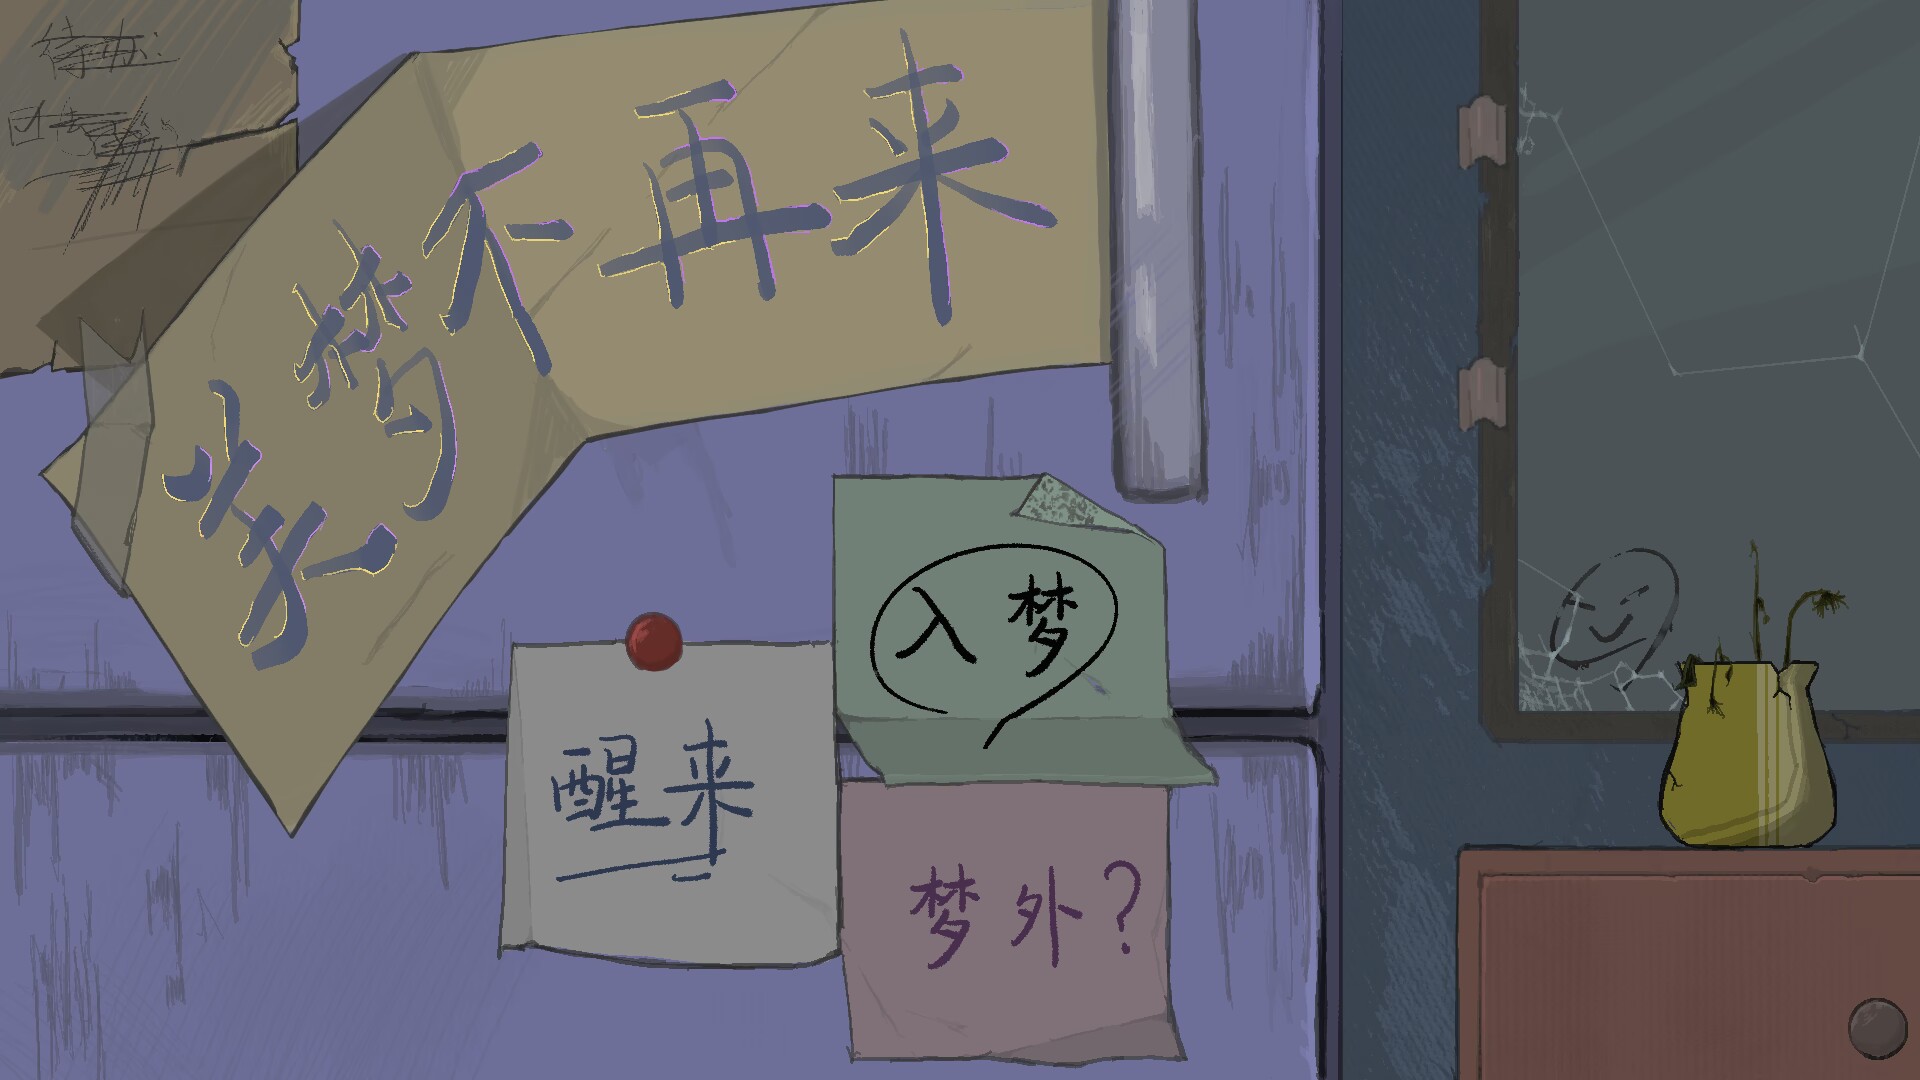 美梦不再来
入梦
醒来
梦外?